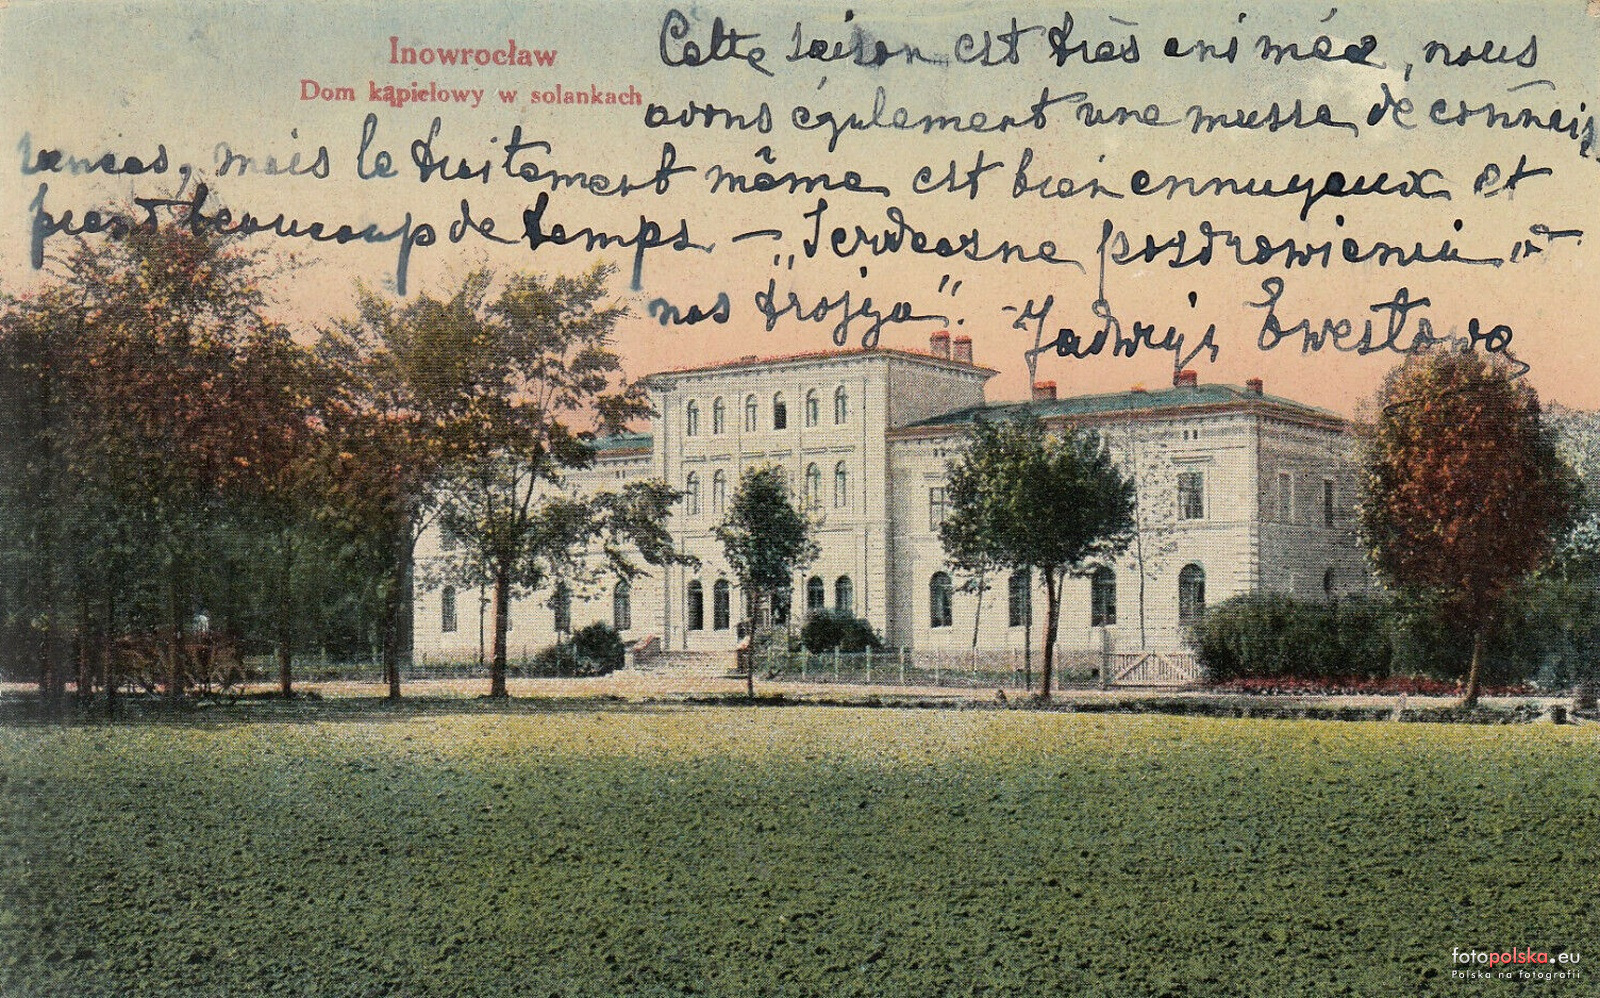 Inowrocław
Dom kąpielowy w solankach
Cette saison est très animée, nous
avons également une masse de connais
sances, mais le traitement même est bien ennuyeux et
prend beaucoup de temps – „Serdeczne pozdrowienia od
nas trojga". –
fotopolska.eu
Polska na fotografii